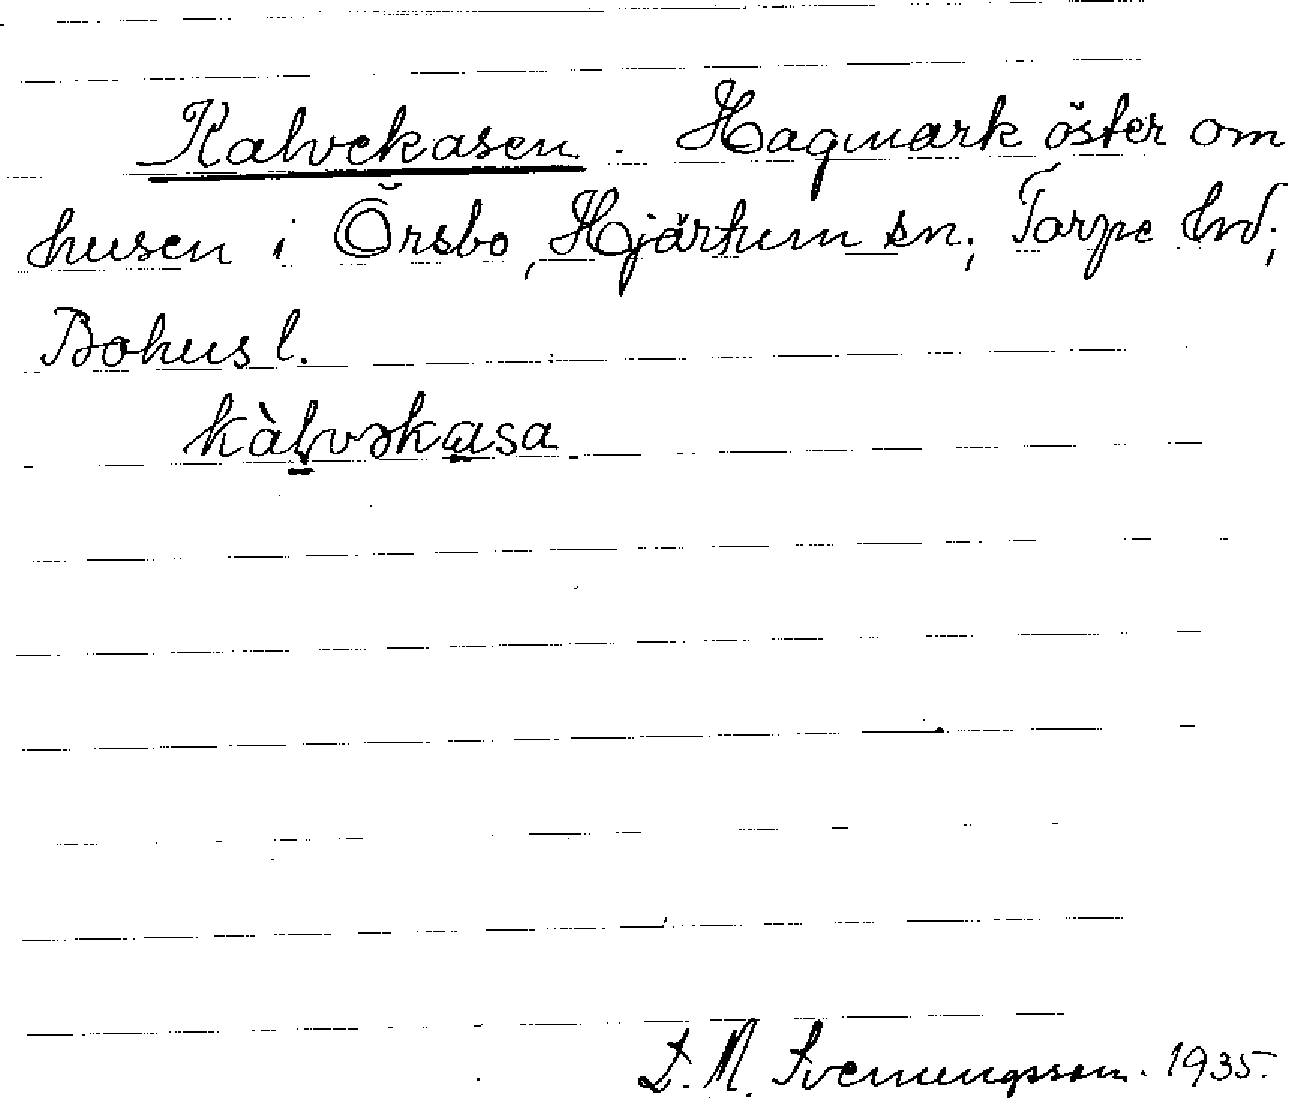 Kalvekasen. Hagmark öster om
husen i Örsbo, Hjärtum sn; Torpe hd;
Bohusl.
kàlvəkasa
D. M. Svenungsson. 1935.